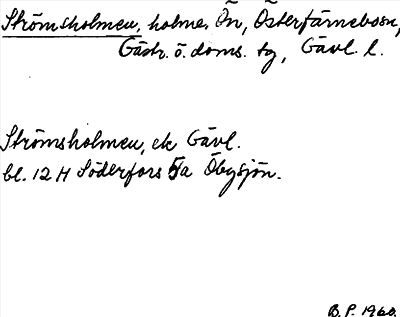 Strömsholmen, holme, Ön, Österfärnebosn,
Gästr. ö. doms. tg, Gävl. l.
Strömsholmen, ek Gävl.
bl. 12 H Söderfors 5a Öbysjön.
B. P. 1960.